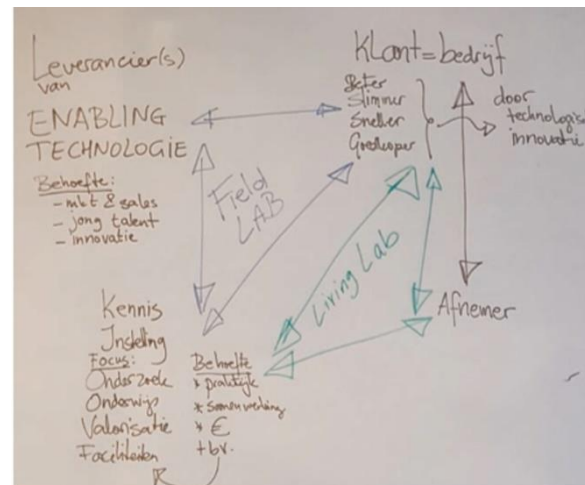 Leverancier(s)
van
ENABLING
TECHNOLOGIE
Behoefte:
- mkt & sales
- jong talent
- innovatie
Klant = bedrijf
Beter
Slimmer
Sneller
Goedkoper
door
technologisc
innovatie
Field
LAB
Living Lab
Afnemer
Kennis
Instelling
Focus:
Onderzoek
Onderwijs
Valorisatie
Faciliteiten
Behoefte
* praktijk
* samenwerking
* €
+ bv.